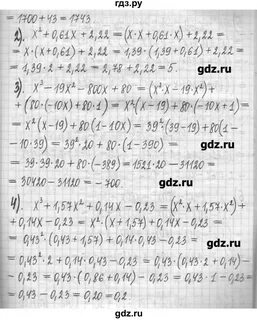 = 1700 + 43 = 1743.
гдз.ру
2). x² + 0,61x + 2,22 = (x·x + 0,61·x) + 2,22 =
= x·(x + 0,61) + 2,22 = 1,39·(1,39 + 0,61) + 2,22 =
= 1,39·2 + 2,22 = 2,78 + 2,22 = 5.
gdz.ru
gdz.ru
3). x³ − 19x² − 800x + 80 = (x³ − 19·x²) +
+ (80·(−10x) + 80·1) = x²(x − 19) + 80·(−10x + 1) =
= x²(x − 19) + 80(1 − 10x) = 39²(39 − 19) + 80(1 −
− 10·39) = 39²·20 + 80(1 − 390) =
= 39·39·20 + 80·(−389) = 1521·20 − 31120 =
= 30420 − 31120 = −700.
gdz.ru
gdz.ru
4). x³ + 1,57x² + 0,14x − 0,23 = (x²·x + 1,57·x²) +
+ 0,14x − 0,23 = x²·(x + 1,57) + 0,14x − 0,23 =
= 0,43²(0,43 + 1,57) + 0,14·0,43 − 0,23 =
= 0,43²·2 + 0,14·0,43 − 0,23 = 0,43(0,43·2 + 0,14) −
− 0,23 = 0,43(0,86 + 0,14) − 0,23 = 0,43·1 − 0,23 =
= 0,43 − 0,23 = 0,20 = 0,2.
gdz.ru
gdz.ru